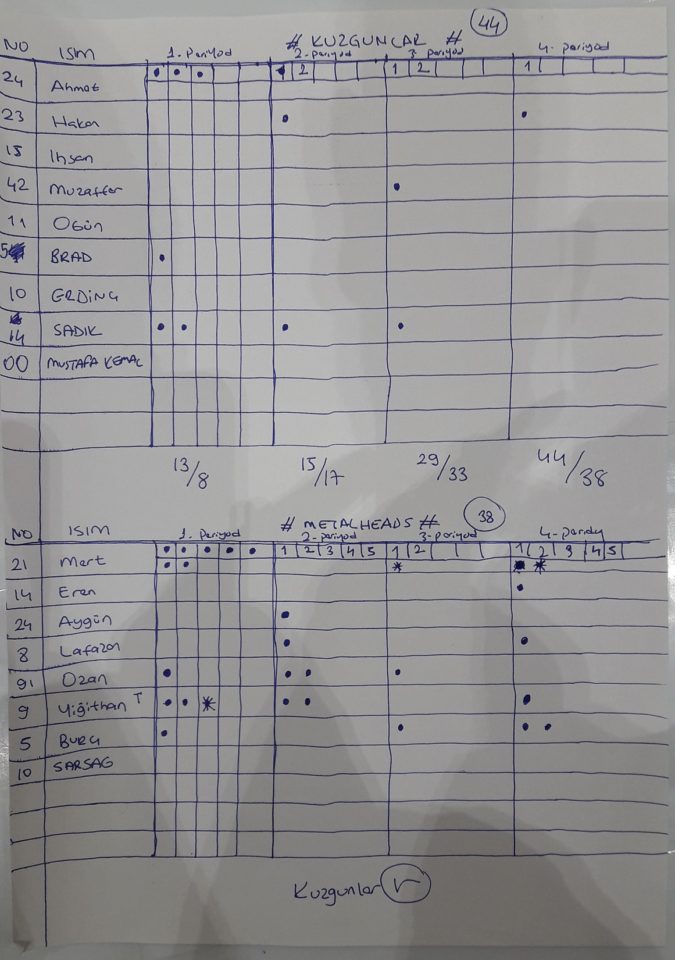 # KUZGUNLAR # 44
NO ISIM 1. Periyod 2. periyod 3. Periyod 4. periyod
1 2 1 2 1
24 Ahmet
23 Hakan
15 Ihsan
42 Muzaffer
11 Ogün
5 BRAD
10 ERDİNÇ
14 SADIK
00 MUSTAFA KEMAL
13/8 15/17 29/33 44/38
# METALHEADS # 38
NO ISIM 1. Periyod 2. periyod 3. periyod 4. periody
1 2 3 4 5 1 2 1 2 3 4 5
21 Mert
14 Eren
24 Aygün
8 Lafazan
91 Ozan
9 Yiğithan T
5 BURÇ
10 SARSAG
Kuzgunlar V